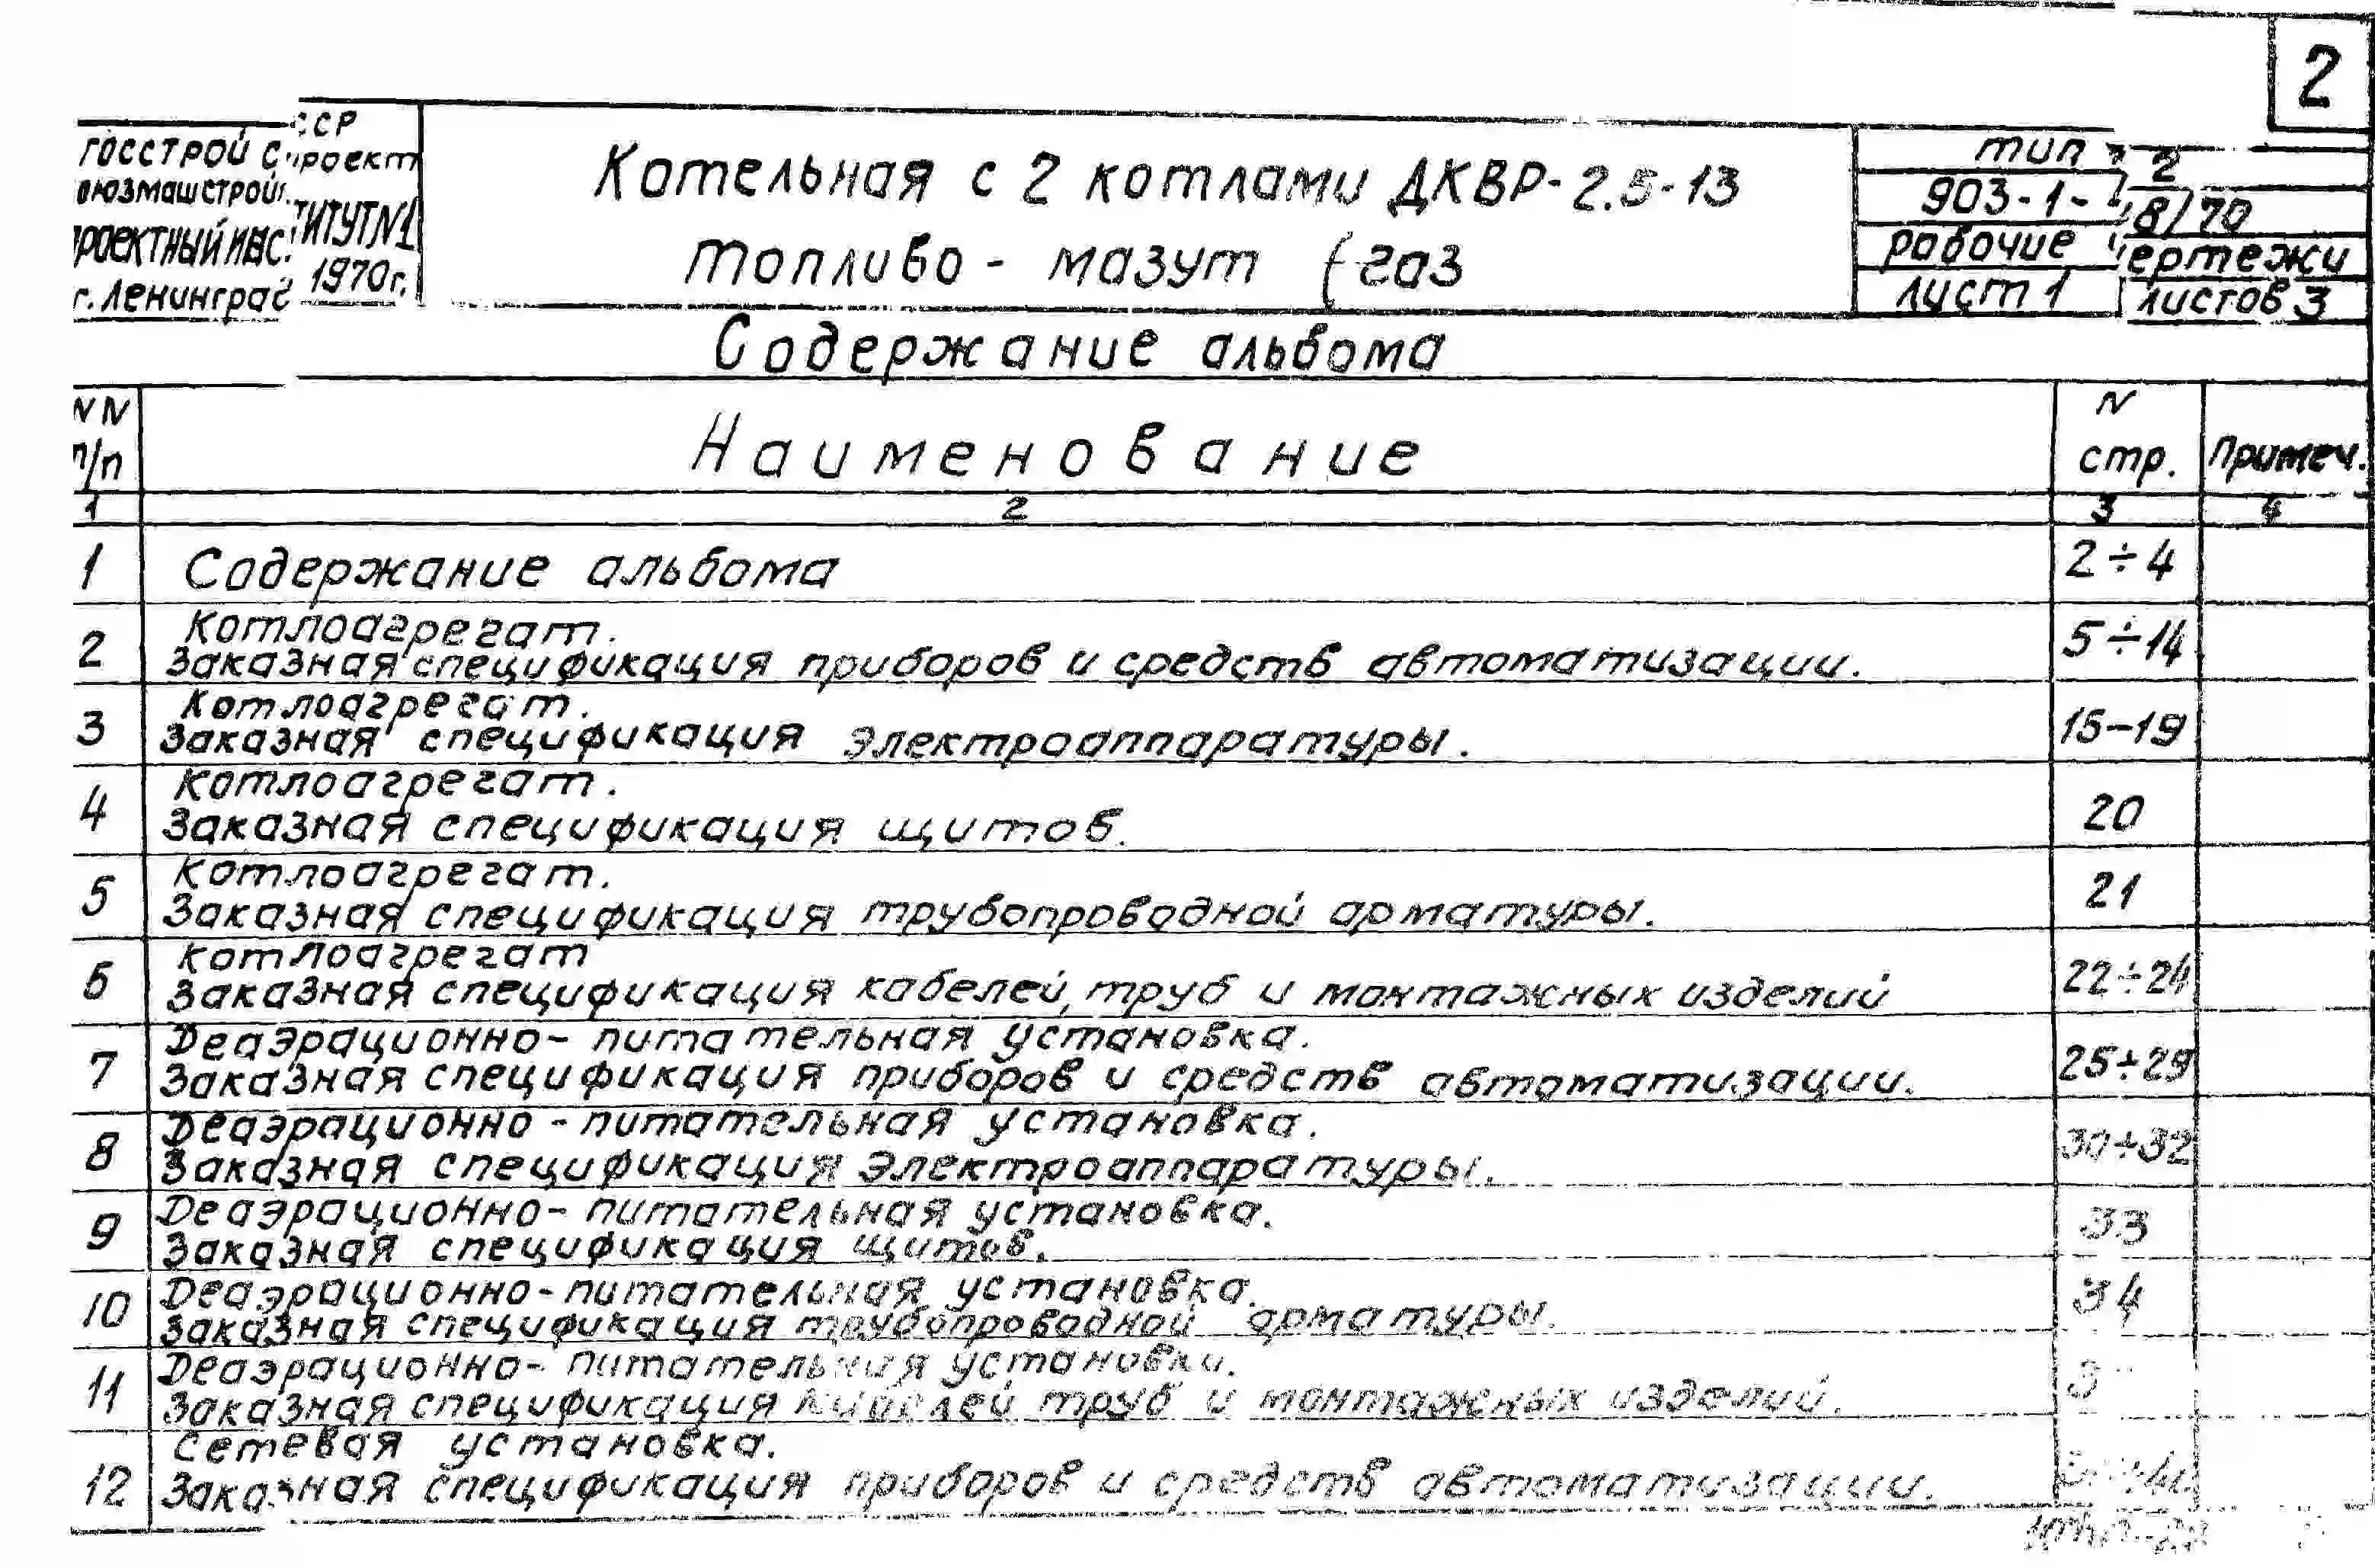 2
ГОССТРОЙ СССР
ОЮЗМАШСТРОЙПРОЕКТ
ПРОЕКТНЫЙ ИНСТИТУТ N1
г. Ленинград 1970г.
Котельная с 2 котлами ДКВР-2.5-13
топливо - мазут (газ
тип 2
903-1- 8/70
рабочие чертежи
лист 1 листов 3
Содержание альбома
NN п/п
Наименование
N стр.
Примеч.
1 2 3 4
1 Содержание альбома 2÷4
Котлоагрегат.
2 Заказная спецификация приборов и средств автоматизации. 5÷14
Котлоагрегат.
3 Заказная спецификация электроаппаратуры. 15-19
Котлоагрегат.
4 Заказная спецификация щитов. 20
Котлоагрегат.
5 Заказная спецификация трубопроводной арматуры. 21
Котлоагрегат
6 Заказная спецификация кабелей, труб и монтажных изделий 22÷24
Деаэрационно-питательная установка.
7 Заказная спецификация приборов и средств автоматизации. 25÷29
Деаэрационно-питательная установка.
8 Заказная спецификация электроаппаратуры. 30÷32
Деаэрационно-питательная установка.
9 Заказная спецификация щитов. 33
Деаэрационно-питательная установка.
10 Заказная спецификация трубопроводной арматуры. 34
Деаэрационно-питательная установка.
11 Заказная спецификация кабелей труб и монтажных изделий.
Сетевая установка.
12 Заказная спецификация приборов и средств автоматизации.